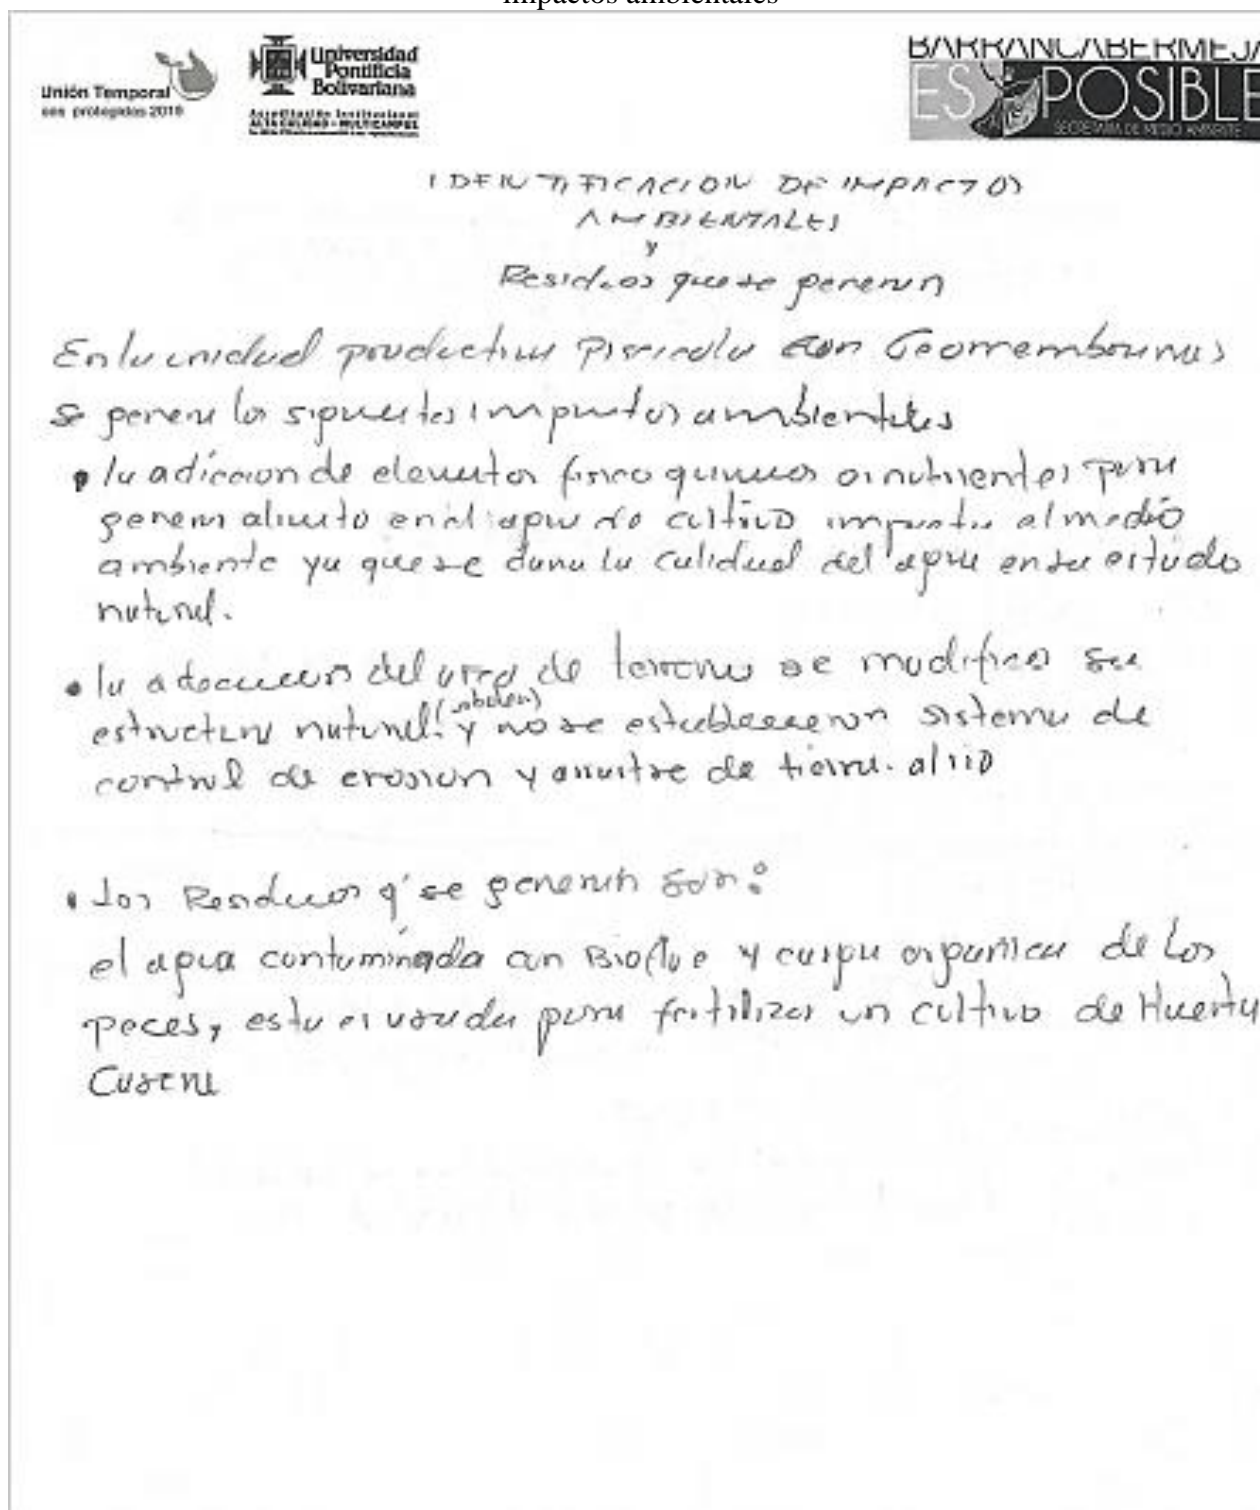 impactos ambientales
Unión Temporal
protegidas 2019
Universidad
Pontificia
Bolivariana
Acreditación Institucional
ALTA CALIDAD - MULTICAMPUS
BARRANCABERMEJA
ES POSIBLE
SECRETARÍA DE MEDIO AMBIENTE
IDENTIFICACION DE IMPACTOS
AMBIENTALES
y
Residuos que se generan
En la unidad productiva Piscicola con Geomembranas
se genera los siguientes impactos ambientales
• la adiccion de elementos fisico quimicos o nutrientes para
generar alimento en el agua de cultivo impacta al medio
ambiente ya que se daña la calidad del agua en su estado
natural.
• la adecuacion del area de terreno se modifico su
estructura natural. y no se establecieron sistema de
control de erosion y arrastre de tierra. al rio
• Los Residuos q' se generan son:
el agua contaminada con Biofloc y carga organica de Los
peces, esta es usada para fertilizar un cultivo de Huerta
Casera